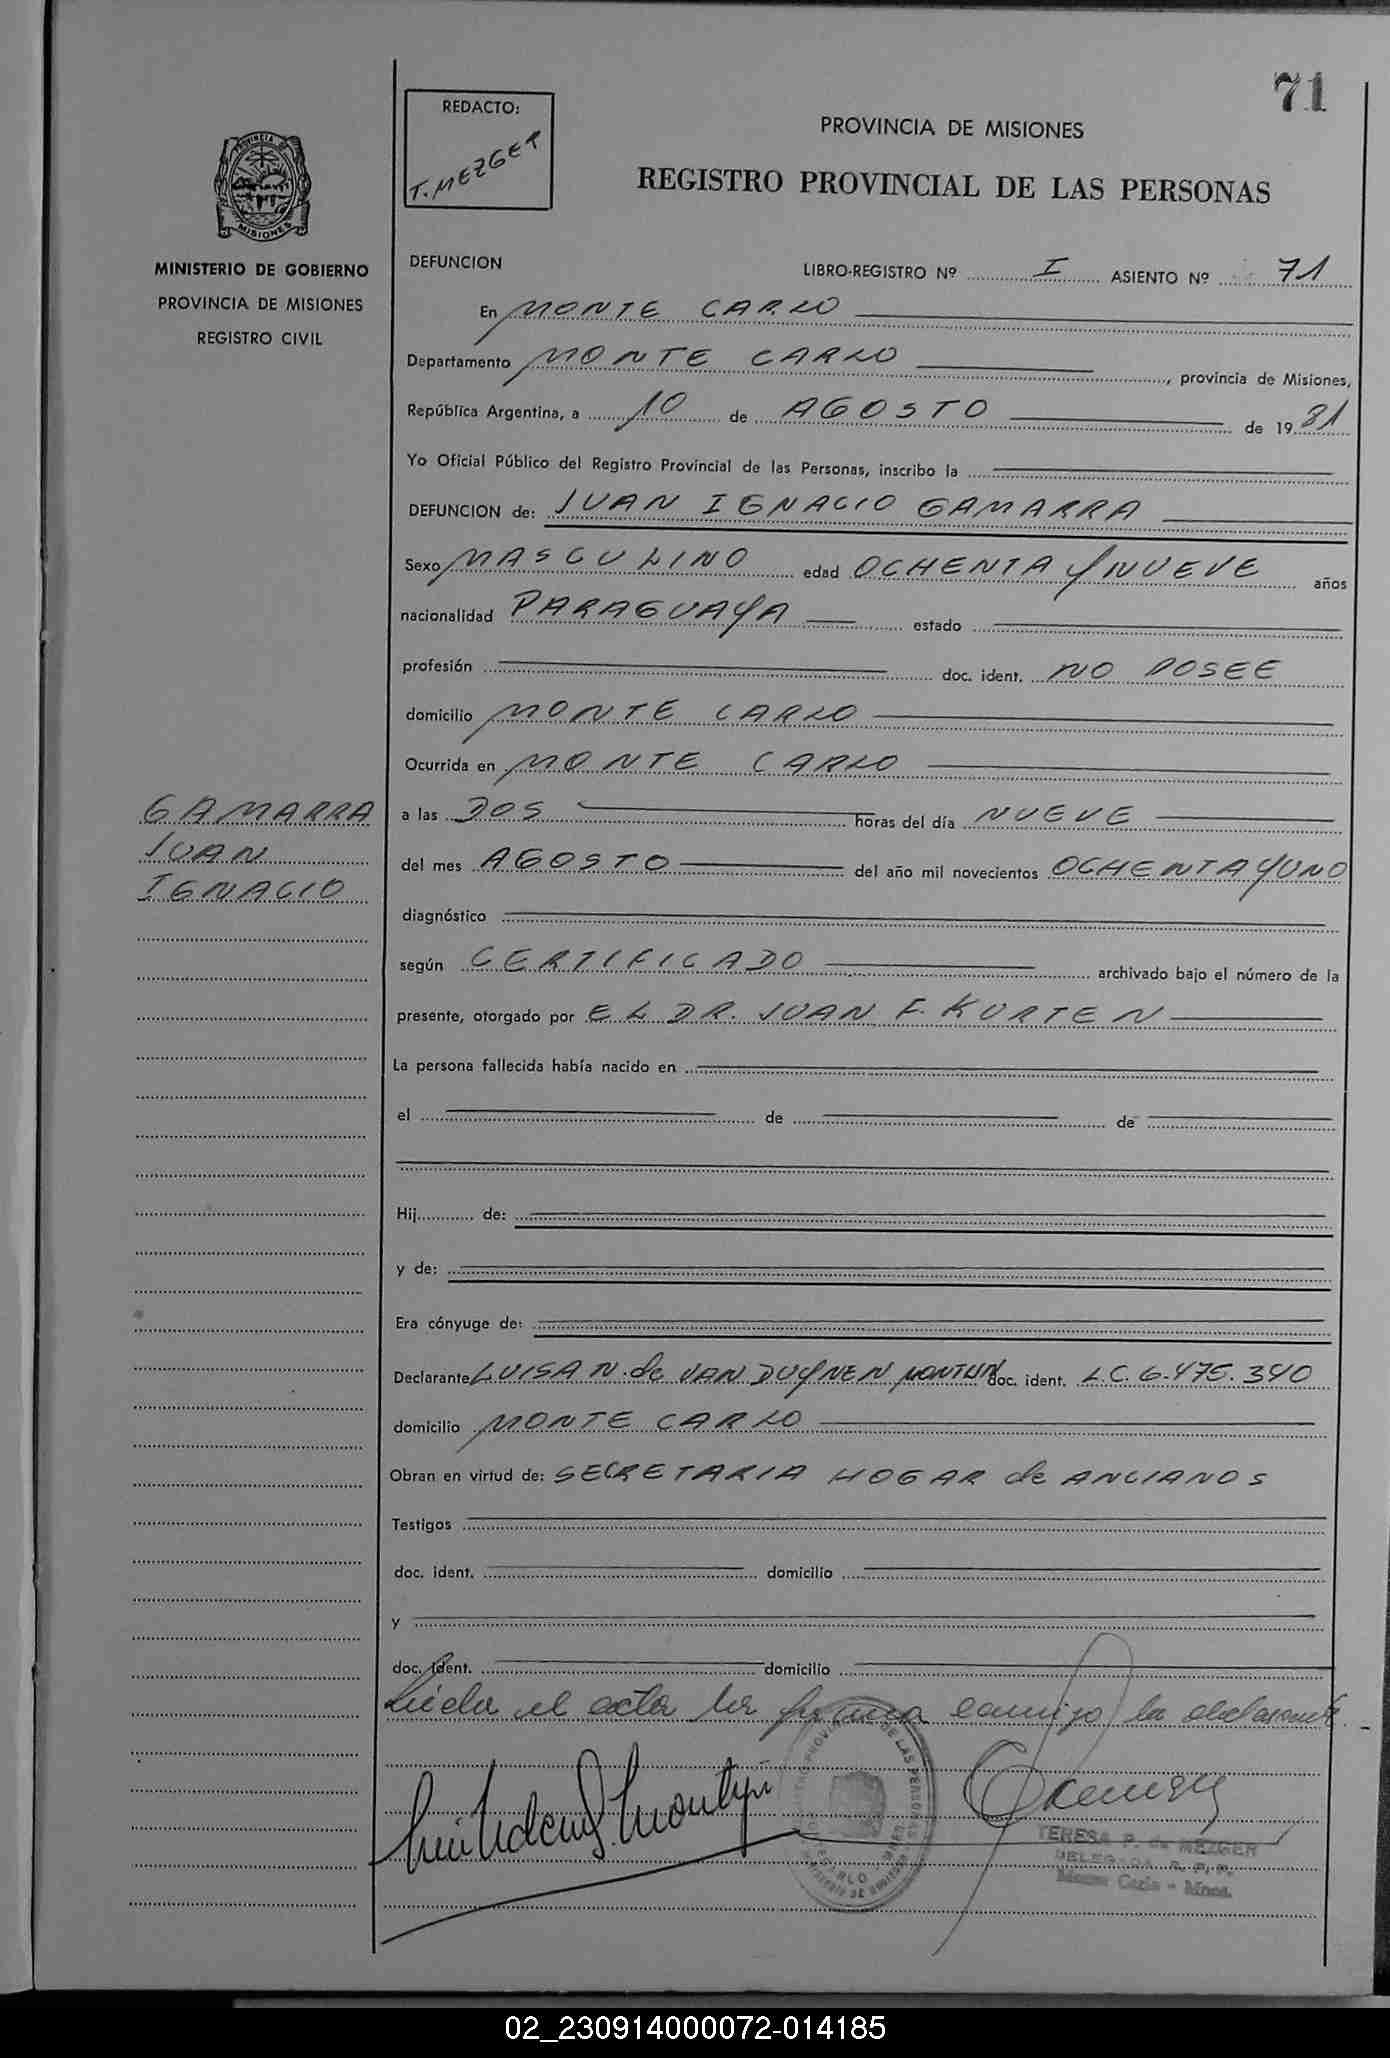 71
REDACTO:
T. MEZGER
PROVINCIA DE MISIONES
REGISTRO PROVINCIAL DE LAS PERSONAS
PROVINCIA DE
MISIONES
MINISTERIO DE GOBIERNO
PROVINCIA DE MISIONES
REGISTRO CIVIL
DEFUNCION
LIBRO-REGISTRO Nº I ASIENTO Nº 71
En MONTE CARLO
Departamento MONTE CARLO, provincia de Misiones,
República Argentina, a 10 de AGOSTO de 1981
Yo Oficial Público del Registro Provincial de las Personas, inscribo la
DEFUNCION de: JUAN IGNACIO GAMARRA
Sexo MASCULINO edad OCHENTA Y NUEVE años
nacionalidad PARAGUAYA estado
profesión doc. ident. NO POSEE
domicilio MONTE CARLO
Ocurrida en MONTE CARLO
GAMARRA
JUAN
IGNACIO
a las DOS horas del día NUEVE
del mes AGOSTO del año mil novecientos OCHENTA Y UNO
diagnóstico
según CERTIFICADO archivado bajo el número de la
presente, otorgado por EL DR. JUAN F. KURTEN
La persona fallecida había nacido en
el de de
Hij de:
y de:
Era cónyuge de:
Declarante LUISA N. de VAN DUYNEN MONTIJN doc. ident. L.C. 6.475.340
domicilio MONTE CARLO
Obran en virtud de: SECRETARIA HOGAR de ANCIANOS
Testigos
doc. ident. domicilio
y
doc. ident. domicilio
Leída el acta la firma conmigo la declarante.
TERESA P. de MEZGER
DELEGADA R. P. P.
Monte Carlo - Mnes.
02_230914000072-014185